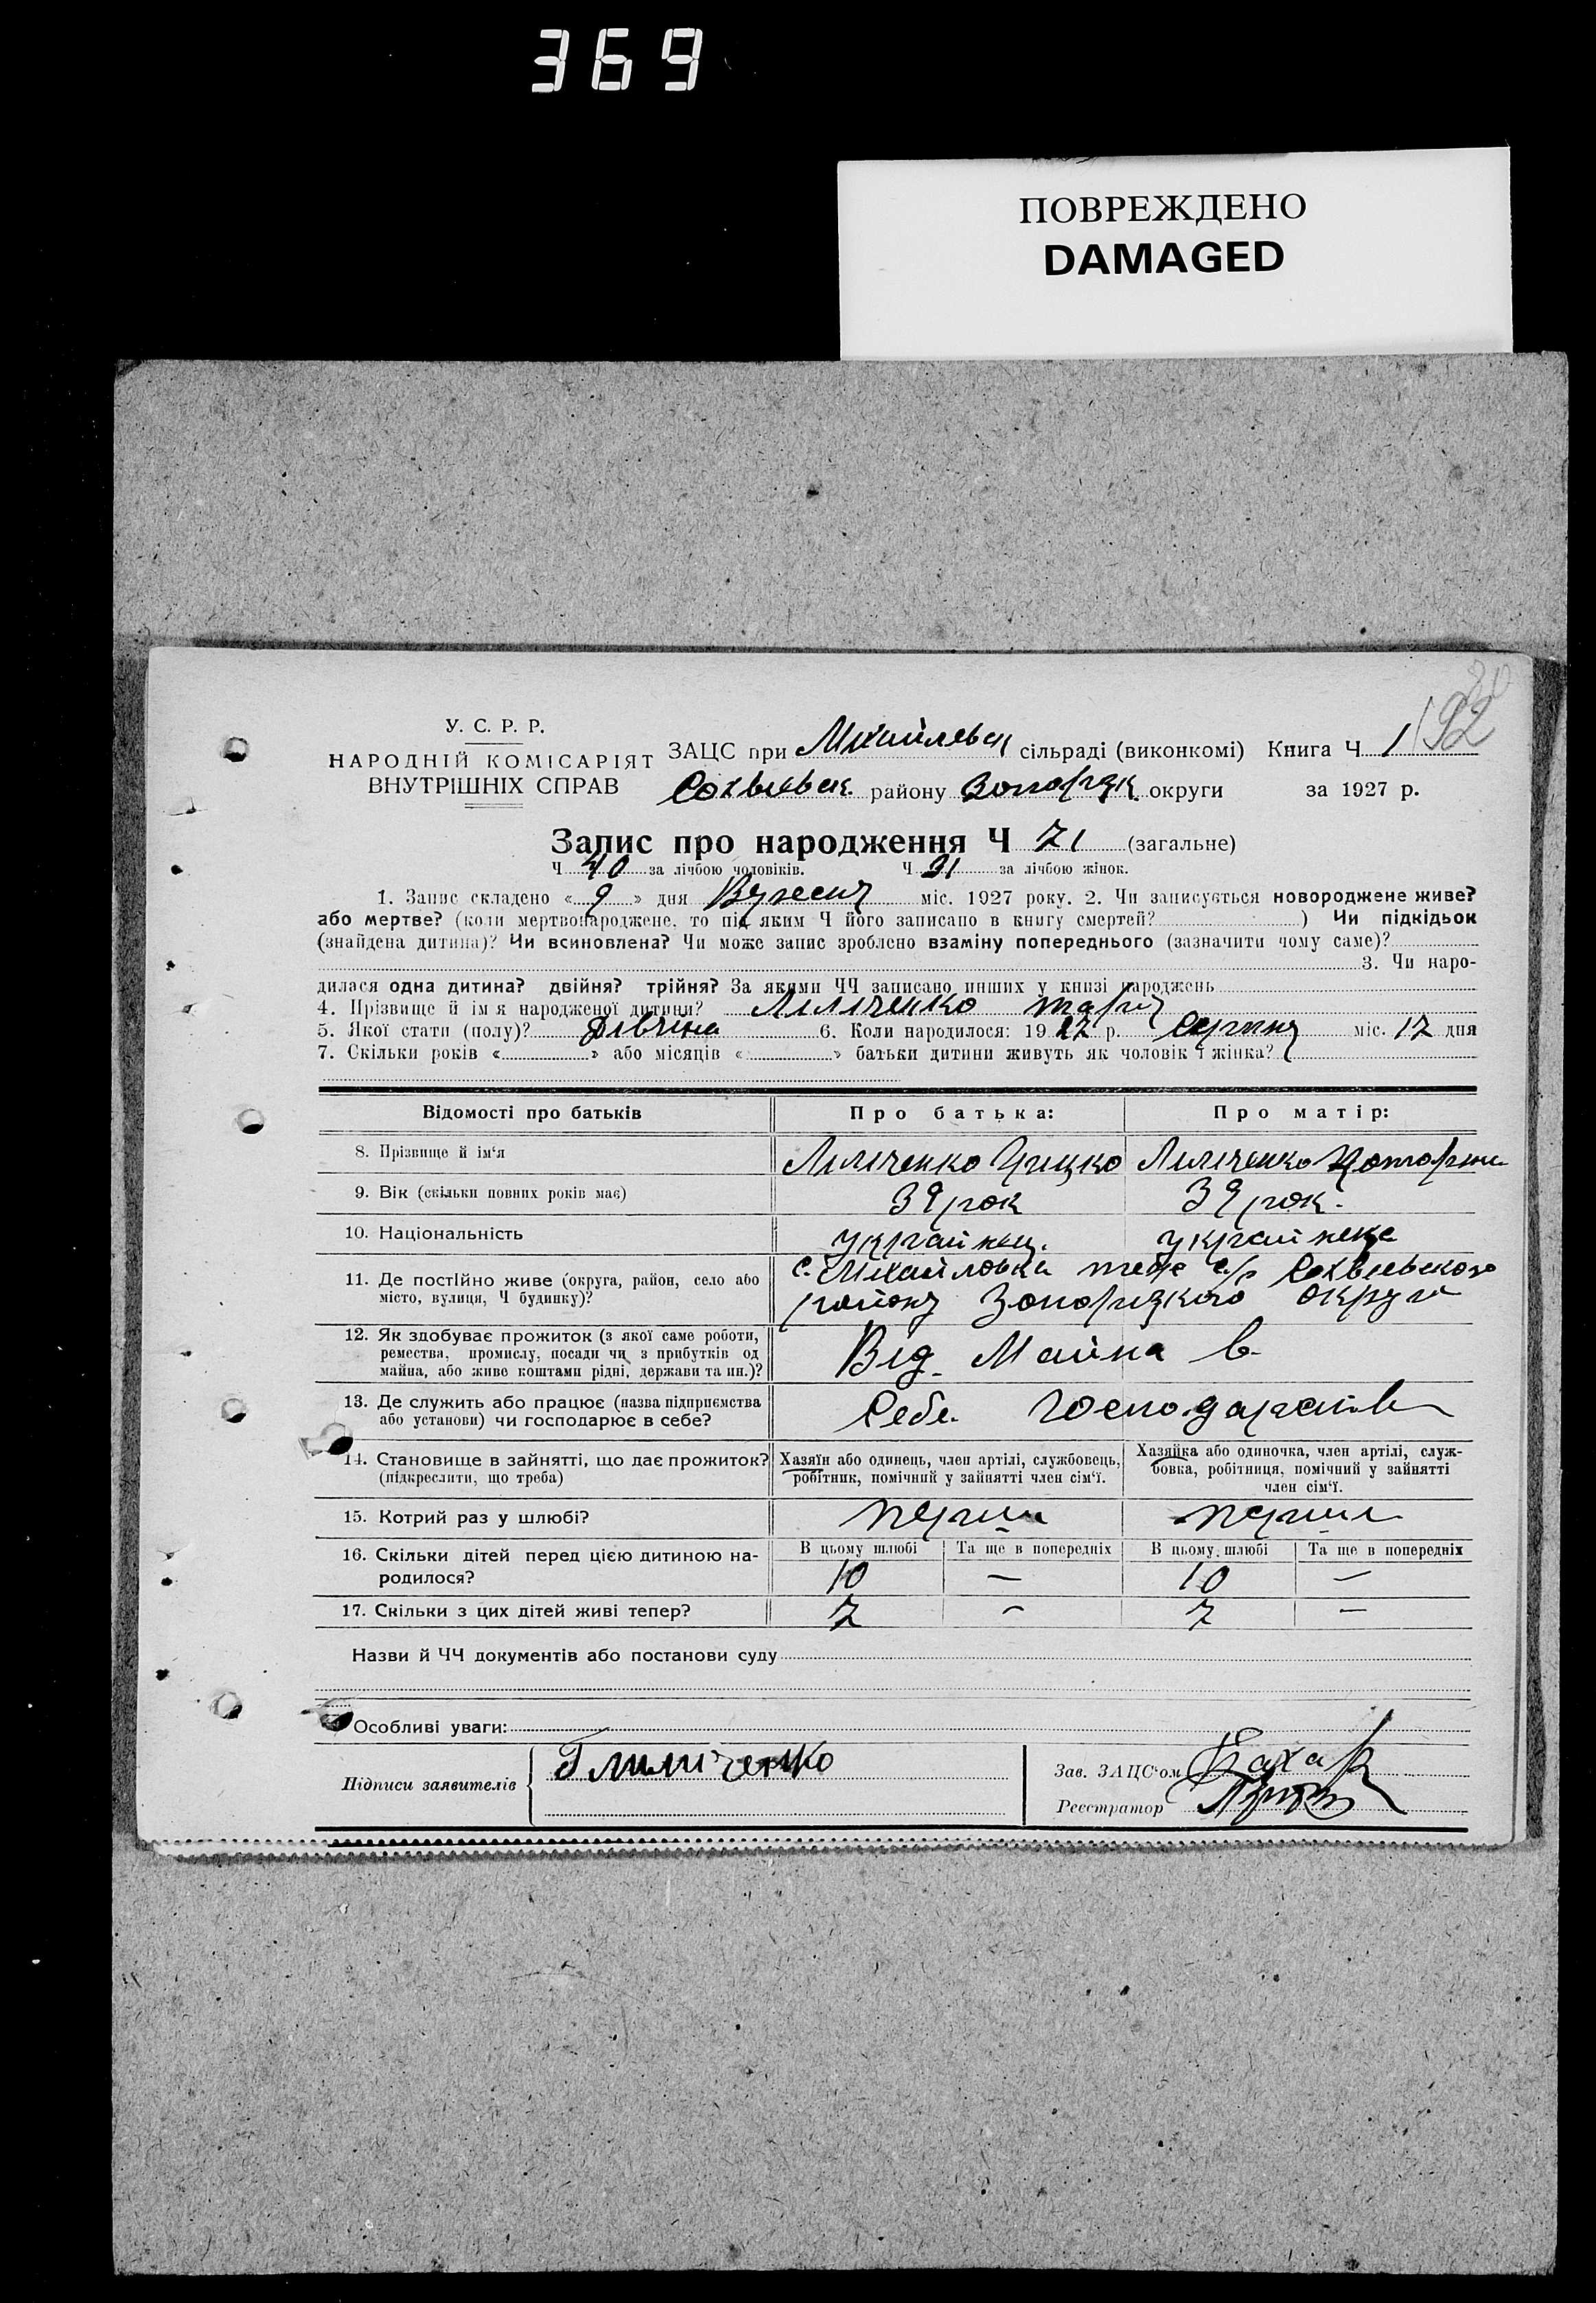 369
ПОВРЕЖДЕНО
DAMAGED
192
У. С. Р. Р.
НАРОДНІЙ КОМІСАРІЯТ
ВНУТРІШНІХ СПРАВ
ЗАЦС при сільраді (виконкомі) Книга Ч 1
району округи за 1927 р.
Запис про народження Ч 71 (загальне)
Ч 40 за лічбою чоловіків. Ч 31 за лічбою жінок.
1. Запис складено « 9 » дня міс. 1927 року. 2. Чи записується новороджене живе?
або мертве? (коли мертвонароджене, то під яким Ч його записано в книгу смертей? ) Чи підкідьок
(знайдена дитина)? Чи всиновлена? Чи може запис зроблено взаміну попереднього (зазначити чому саме)?
3. Чи наро-
дилася одна дитина? двійня? трійня? За якими ЧЧ записано инших у книзі народжень
4. Прізвище й ім я народженої дитини?
5. Якої стати (полу)? Дівчіна 6. Коли народилося: 19 27 р. Серпня міс. 17 дня
7. Скільки років « » або місяців « » батьки дитини живуть як чоловік і жінка?
Відомості про батьків Про батька: Про матір:
8. Прізвище й ім‘я
9. Вік (скільки повних років має) 39 рок 39 рок.
10. Національність українец. українка
11. Де постійно живе (округа, район, село або с. Михайловка теж с/р
місто, вулиця, Ч будинку)? району Запоріжкого округи
12. Як здобуває прожиток (з якої саме роботи,
ремества, промислу, посади чи з прибутків од
майна, або живе коштами рідні, держави та ин.)? Від Майна в
13. Де служить або працює (назва підприємства
або установи) чи господарює в себе? Себе
14. Становище в зайнятті, що дає прожиток?
(підкреслити, що треба)
Хазяїн або одинець, член артілі, службовець,
робітник, помічний у зайнятті член сім‘ї.
Хазяйка або одиночка, член артілі, служ-
бовка, робітниця, помічний у зайнятті
член сім‘ї.
15. Котрий раз у шлюбі?
16. Скільки дітей перед цією дитиною на-
родилося?
В цьому шлюбі Та ще в попередніх В цьому шлюбі Та ще в попередніх
10 — 10 —
17. Скільки з цих дітей живі тепер? 7 — 7 —
Назви й ЧЧ документів або постанови суду
Особливі уваги:
Підписи заявителів
Зав. ЗАЦС‘ом
Реєстратор